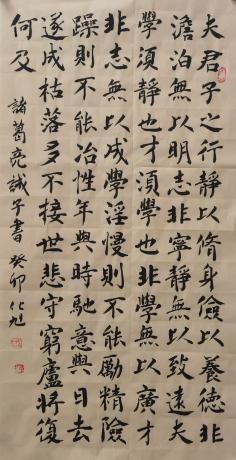 夫君子之行静以脩身儉以養德非
澹泊無以明志非寧靜無以致遠夫
學須靜也才須學也非學無以廣才
非志無以成學淫慢則不能勵精險
躁則不能冶性年與時馳意與日去
遂成枯落多不接世悲守窮廬將復
何及
諸葛亮誡子書 癸卯 化旭